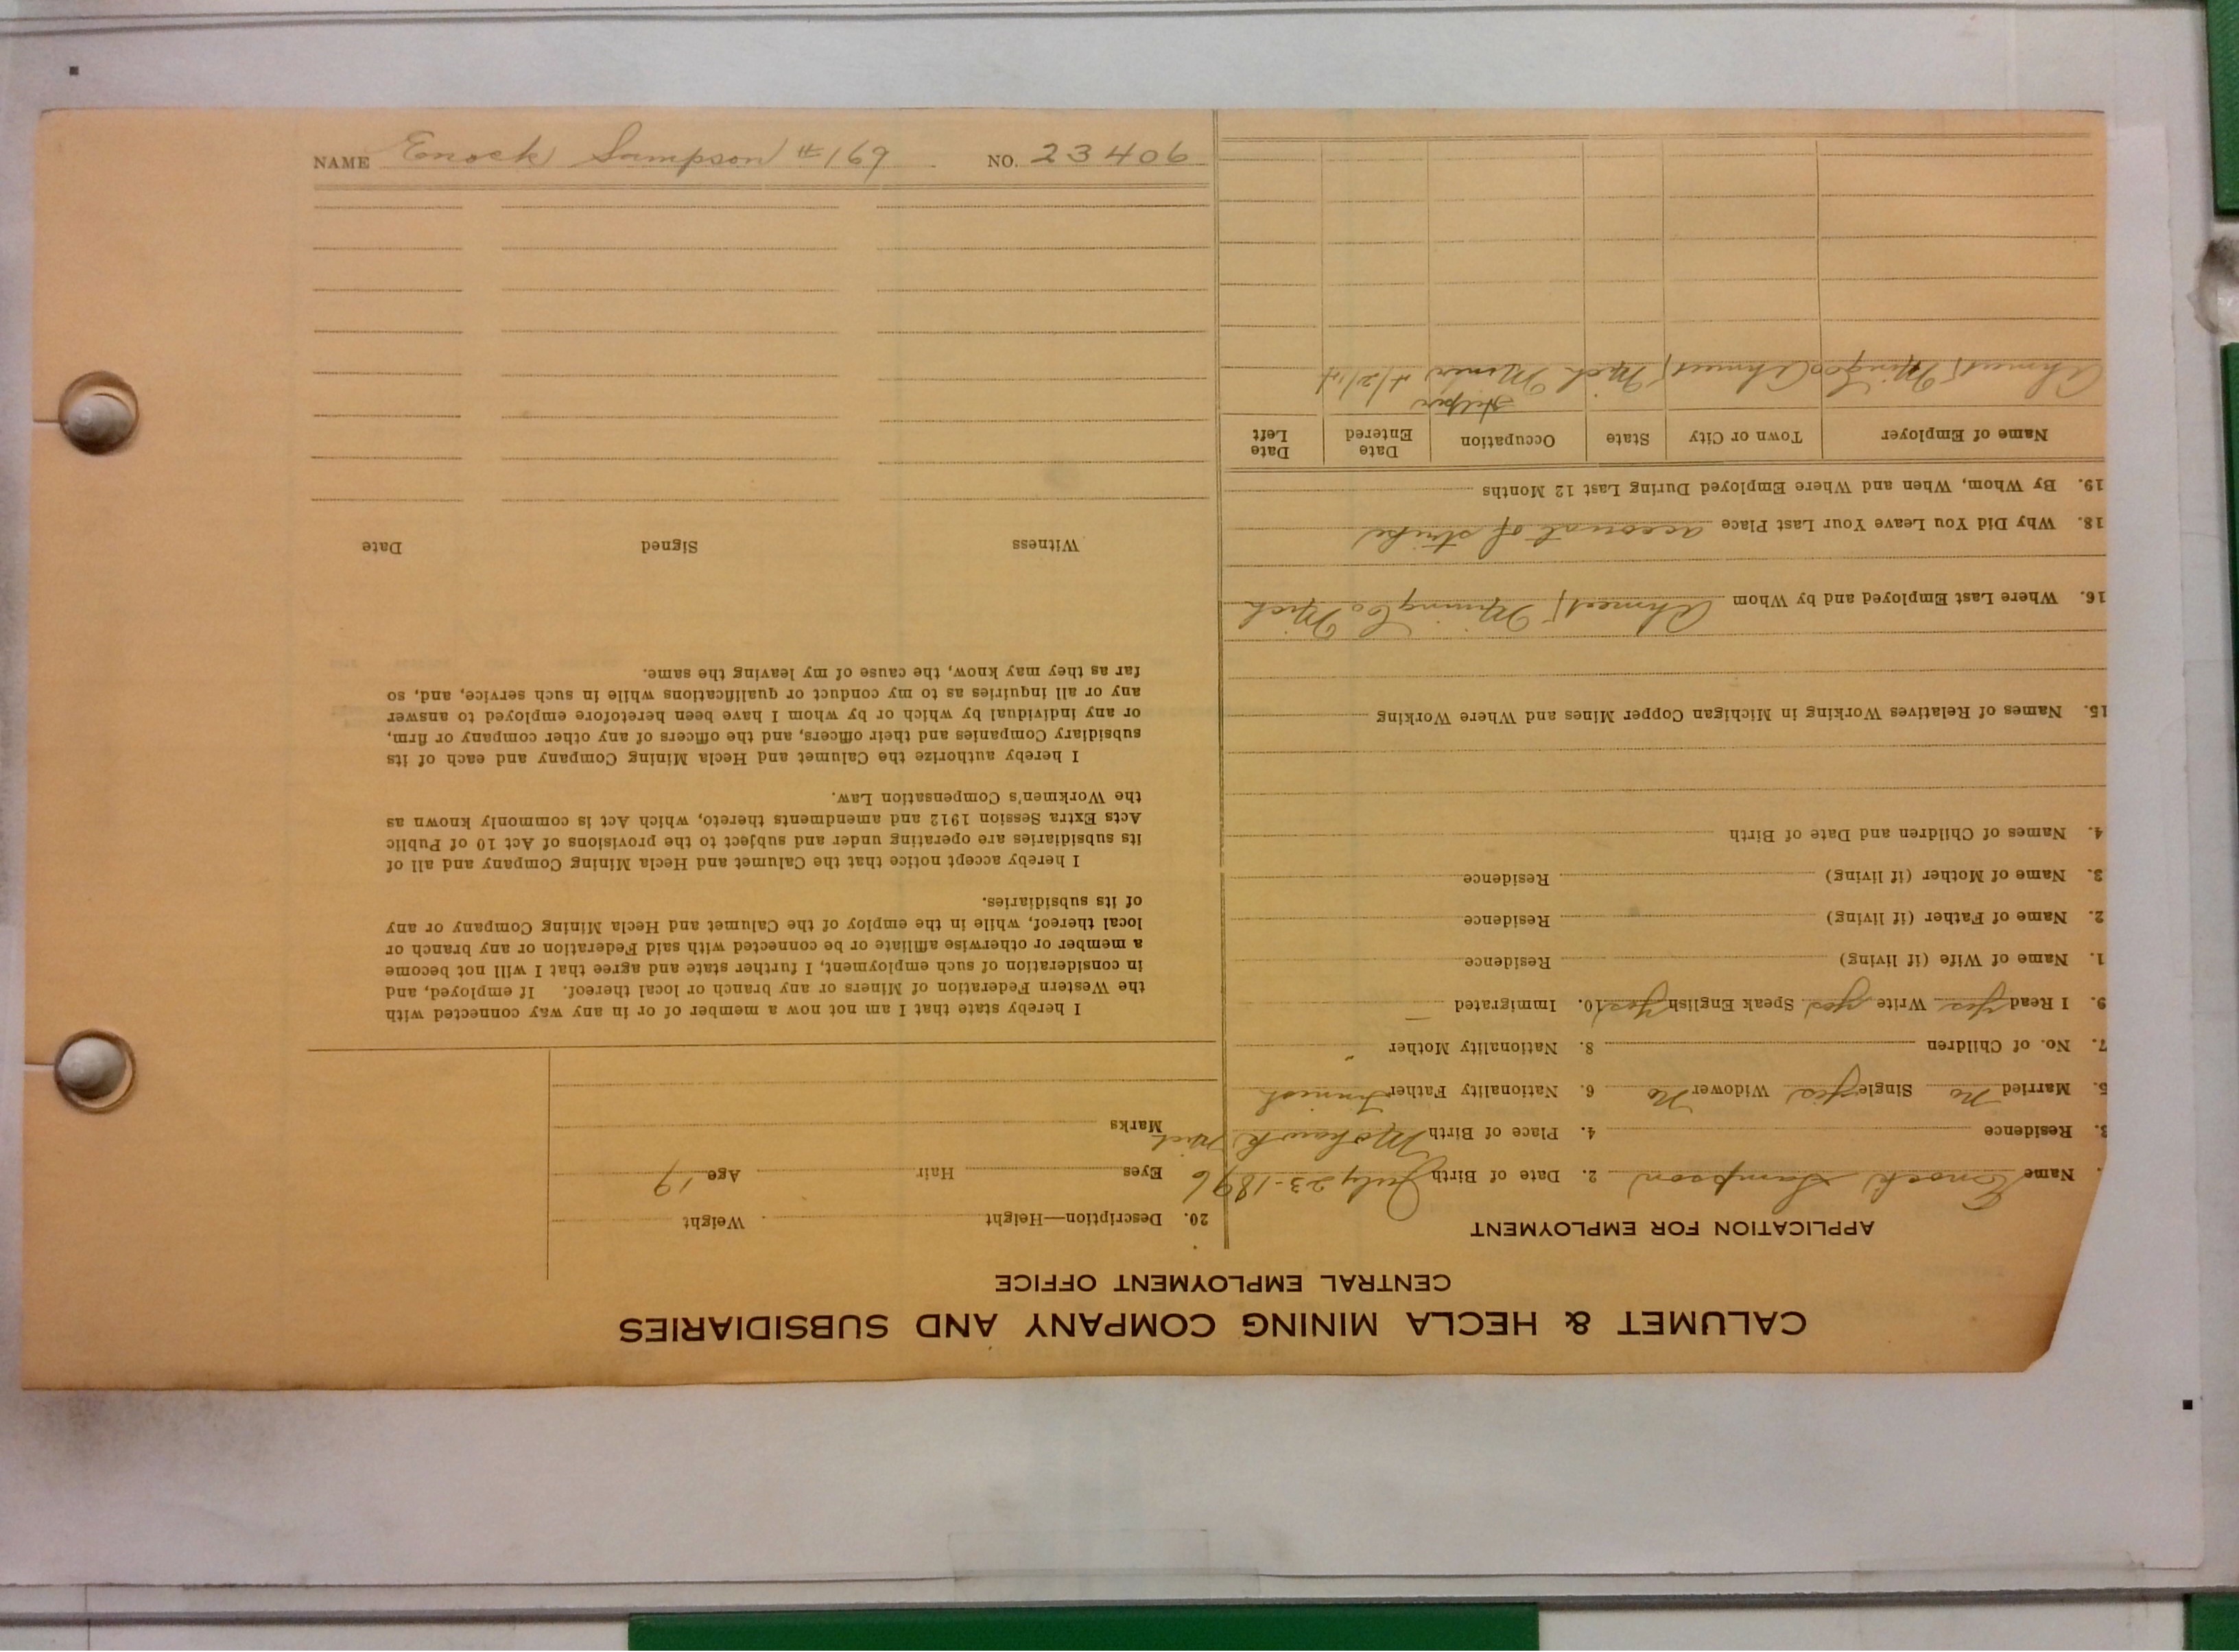 CALUMET & HECLA MINING COMPANY AND SUBSIDIARIES
CENTRAL EMPLOYMENT OFFICE
APPLICATION FOR EMPLOYMENT
. Name Enock Sampson 2. Date of Birth July 23-1896
3. Residence 4. Place of Birth Mohawk Mich
5. Married No Single Yes Widower No 6. Nationality Father Finnish
7. No. of Children 8. Nationality Mother "
9. I Read Yes Write Yes Speak English Yes 10. Immigrated —
1. Name of Wife (if living) Residence
2. Name of Father (if living) Residence
3. Name of Mother (if living) Residence
4. Names of Children and Date of Birth
15. Names of Relatives Working in Michigan Copper Mines and Where Working
16. Where Last Employed and by Whom Ahmeek Mining Co Mich
18. Why Did You Leave Your Last Place account of strike
19. By Whom, When and Where Employed During Last 12 Months
Name of Employer Town or City State Occupation Date Entered Date Left
Helper
Ahmeek Mining Co Ahmeek Mich Miner
20. Description—Height Weight
Eyes Hair Age 19
Marks
I hereby state that I am not now a member of or in any way connected with
the Western Federation of Miners or any branch or local thereof. If employed, and
in consideration of such employment, I further state and agree that I will not become
a member or otherwise affiliate or be connected with said Federation or any branch or
local thereof, while in the employ of the Calumet and Hecla Mining Company or any
of its subsidiaries.
I hereby accept notice that the Calumet and Hecla Mining Company and all of
its subsidiaries are operating under and subject to the provisions of Act 10 of Public
Acts Extra Session 1912 and amendments thereto, which Act is commonly known as
the Workmen's Compensation Law.
I hereby authorize the Calumet and Hecla Mining Company and each of its
subsidiary Companies and their officers, and the officers of any other company or firm,
or any individual by which or by whom I have been heretofore employed to answer
any or all inquiries as to my conduct or qualifications while in such service, and, so
far as they may know, the cause of my leaving the same.
Witness Signed Date
NAME Enock Sampson #169 NO. 23406